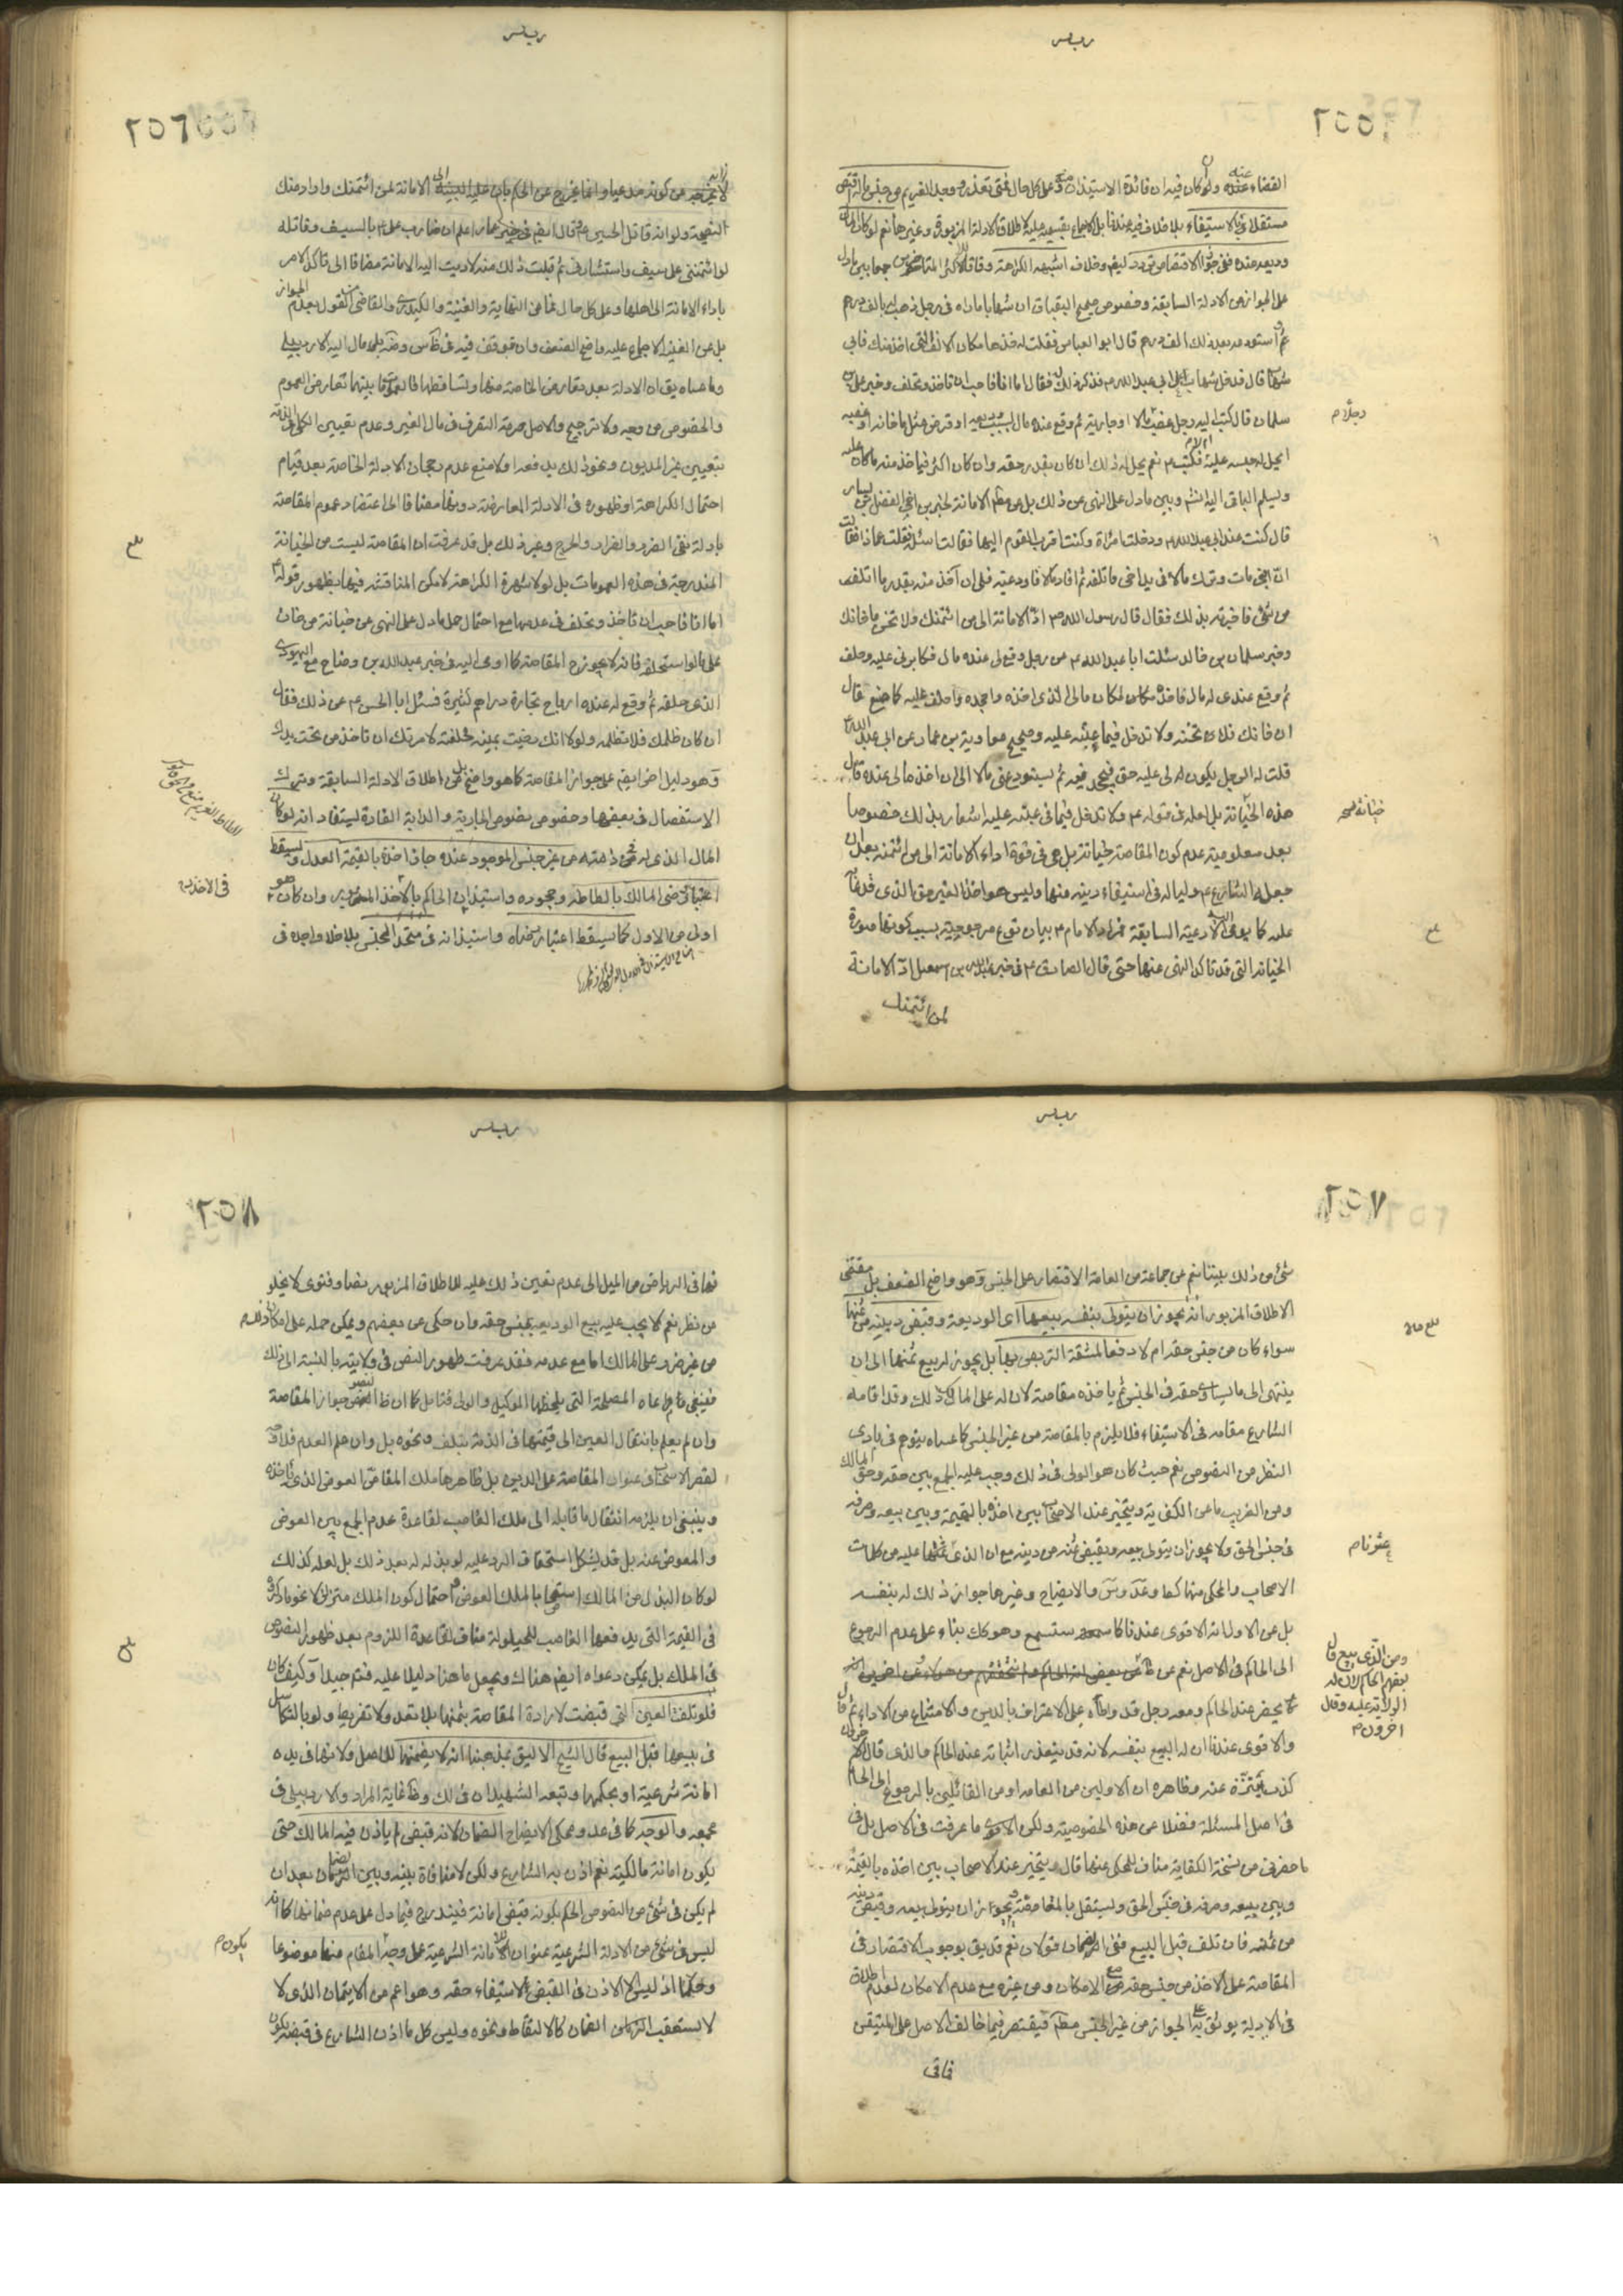 ٢٥٥
مستقلا في الاستيفاء بلا خلاف فيه عندنا بل الاجماع بقسميه عليه لاطلاق الادلة المزبورة وغيرها نعم لو كان المال
وديعه عنده ففي جواز الاقتصاص تردد
على الجواز من الادلة السابقة وخصوص صحيح البقباق ان شهابا ماراه في رجل ذهب له بالف درهم
ثم استودعه بعد ذلك الف درهم قال ابو العباس فقلت له خذها مكان الالف التي اخذ منك فابى
شهاب قال فدخل شهاب على ابي عبد الله ع فذكر ذلك له فقال اما انا فاحب ان تاخذ وتحلف وخبر علي بن
سلمان قال كتب اليه رجل غصب مالا او جارية ثم وقع عنده مال بسبب وديعه او قرض مثل ما خانه او غصبه
ايحل له حبسه عليه فكتب ع نعم يحل له ذلك ان كان بقدر حقه وان كان اكثر فياخذ منه ما كان عليه
ويسلم الباقي اليه انشم وبين ما دل على النهي عن ذلك
قال كنت عند ابي عبد الله ع ودخلت امراة وكنت اقرب القوم اليها فقالت اسئله فقلت عما ذا فقالت
ان ابني مات وترك مالا في يد اخي فاتلفه ثم افاد مالا فاودعنيه فلي ان آخذ منه بقدر ما اتلف
من شيء فاخبرته بذلك فقال قال رسول الله ص ادّ الامانة الى من ائتمنك ولا تخن من خانك
وخبر سلمان بن خالد سئلت ابا عبد الله ع عن رجل وقع لي عنده مال فكابرني عليه وحلف
ثم وقع عندي له مال فاخذه مكان مالي الذي اخذه واجحده واحلف عليه كما صنع قال
ان خانك فلا تخنه ولا تدخل فيما عبته عليه وصحيح معاوية بن عمار عن ابي عبد الله ع
قلت له الرجل يكون لي عليه حق فيجحدنيه ثم يستودعني مالا الي ان اخذ مالي عنده قال
هذه الخيانة بل لعله في قوله ع ولا تدخل فيما عبته عليه اشعار بذلك خصوصا
بعد معلومية عدم كون المقاصة خيانة بل هي في قوة اداء الامانة الى من ائتمنه بعد ان
جعله الشارع ع وليا له في استيفاء دينه منها وليس هو اخذا لغير حق
بيان نوع مرجوحية بسبب كونها صورة
الخيانة التي قد تاكد النهي عنها حتى قال الصادق ع في خبر
لمن ائتمنك
خيانة صح
٢٥٦
النصيحة ولو انه قاتل الحسين ع قال ايضا في خبر عمار اعلم ان ضارب علي ع بالسيف وقاتله
لو ائتمنني على سيف واستشارني ثم قبلت ذلك منه لاديت اليه الامانة مضافا الى تاكد الامر
باداء الامانة الى اهلها وعلى كل حال فما عن النهاية والغنية والكيدري والقاضي من القول بعدم الجواز
بل عن الغنية الاجماع عليه واضح الضعف
وما عساه يق ان الادلة بعد تعارض الخاصة منها وتساقطها فالعمومات بينها تعارض العموم
والخصوص من وجه ولا ترجيح والاصل حرمة التصرف في مال الغير وعدم تعيين الكلي
بتعيين غير المديون ونحو ذلك يدفعه اولا منع عدم رجحان الادلة الخاصة بعد قيام
احتمال الكراهة او ظهوره في الادلة المعارضة دونها مضافا الى اعتضاد عموم المقاصة
بادلة نفي الضرر والضرار والحرج وغير ذلك بل قد عرفت ان المقاصة ليست من الخيانة
المندرجة في هذه العمومات بل لولا شهرة الكراهة لامكن المناقشة فيها بظهور قوله ع
اما انا فاحب ان تاخذ وتحلف في عدمها مع احتمال حمل ما دل على النهي عن خيانة من خان
على ما لو استحلفه فانه لا يجوز ح المقاصة كما اومى اليه في خبر عبد الله بن وضاح مع اليهودي
الذي حلفه ثم وقع له عنده ارباح تجارة دراهم كثيرة فسئل ابا الحسن ع عن ذلك فقال
ان كان ظلمك فلا تظلمه ولولا انك رضيت بيمينه فحلفته لامرتك ان تاخذ من تحت يدك
وهو دليل اخر ايضا على جواز المقاصة كما هو واضح بل من اطلاق الادلة السابقة وترك
الاستفصال في بعضها وخصوص نصوص الجارية والدابة الفارهة يستفاد انه لو كان
المال الذي له في ذمته من غير جنس الموجود عنده جاز اخذه بالقيمة العدل ويسقط
اعتبار رضى المالك بالطاطه وجحوده واستيذان الحاكم بالاخذ
اولى من الاول كما سيقط اعتبار رضاه واستيذانه في متحد الجنس بلا خلاف اجده في
في الاخذ
٢٥٧
شيء من ذلك بيننا نعم عن جماعة من العامة الاقتصار على الجنس وهو واضح الضعف بل مقتضى
الاطلاق المزبور انه يجوز ان يتولى بنفسه بيعها اي الوديعة وقبض دينه من ثمنها
سواء كان من جنس حقه ام لا دفعا لمشقة التربص بها بل يجوز له بيع ثمنها الى ان
ينتهي الى ما يساوي حقه في الجنس ثم ياخذه مقاصة لان له على المالك ذلك وقد اقامه
الشارع مقامه في الاستيفاء فلا يلزم بالمقاصة من غير الجنس كما عساه يتوهم في بادي
النظر من النصوص نعم حيث كان هو الولي في ذلك وجب عليه الجمع بين حقه وحق المالك
ومن الغريب ما عن الكفاية ويتخير عند الاصحاب بين اخذه بالقيمة وبين بيعه وصرفه
في جنس الحق ولا يجوز ان يتولى بيعه ويقبض ثمنه من دينه مع ان الذي عثرنا عليه من كلمات
الاصحاب والمحكي منها كما والايضاح وغيرها جواز ذلك له بنفسه
بل عن الاول انه الاقوى عندنا كما ستسمع وهو كك بناء على عدم الرجوع
الى الحاكم في الاصل نعم عن
يحضر عند الحاكم ومعه رجل قد واطأه على الاعتراف بالدين والامتناع من الاداء ثم قال
والاقوى عندنا ان له البيع بنفسه لانه قد يتعذر اثباته عند الحاكم والذي قال
كذب يتنزه عنه وظاهره ان الاولين من العامة او من القائلين بالرجوع الى الحاكم
في اصل المسئلة فضلا عن هذه الخصوصية ولكن الاقوى ما عرفت في الاصل بل في
ما حضرني من نسخة الكفاية مناف للمحكي عنها قال ويتخير عند الاصحاب بين اخذه بالقيمة
وبين بيعه وصرفه في جنس الحق ويستقل بالمقاصة ويجوز ان يتولى بيعه وقبض دينه
من ثمنه فان تلف قبل البيع ففي الضمان قولان نعم قد يق بوجوب الاقتصار في
المقاصة على الاخذ من جنس حقه مع الامكان ومن غيره مع عدم الامكان لعدم اطلاق
في الادلة يوثق به على الجواز من غير الجنس مطلقا فيقتصر فيما خالف الاصل على المتيقن
فما في
عثرنا م
ومن الذي يبيع قال
بعضهم الحاكم لان له
الولاية عليه وقال
اخرون م
٢٥٨
فما في الرياض من الميل الى عدم تعين ذلك عليه للاطلاق المزبور نصا وفتوى لا يخلو
من نظر نعم لا يجب عليه بيع الوديعة بجنس حقه وان حكي عن بعضهم ويمكن حمله على امكان ذلك
من غير ضرر على المالك اما مع عدمه فقد عرفت ظهور النص في ولايته بالنسبة الى ذلك
فينبغي مراعاة المصلحة التي يلحظها الوكيل والولي فتامل كما ان ظ النصوص جواز المقاصة
وان لم يعلم بانتقال العين الى قيمتها في الذمة بتلف ونحوه بل وان علم العدم فلا وجه
لقصر الاصحاب عنوان المقاصة على الدين بل ظاهرها ملك المقاص العوض الذي ياخذه
وينبغي ان يلزمه انتقال ما قابله الى ملك الغاصب لقاعدة عدم الجمع بين العوض
والمعوض عنه بل قد يشكل استحقاق الرد عليه لو بذله له بعد ذلك بل لعله كذلك
لو كان البذل من المالك استصحابا لملك العوض واحتمال كون الملك متزلزلا نحو ما ذكروه
في القيمة التي يدفعها الغاصب للحيلولة مناف لقاعدة اللزوم بعد ظهور النصوص
في الملك بل يمكن دعواه ايضا هناك ويجعل ما هنا دليلا عليه فتم جيدا وكيف كان
فلو تلفت العين التي قبضت لارادة المقاصة بثمنها بلا تعد ولا تفريط ولو بالتكاسل
في بيعها قبل البيع قال الشيخ الاليق بمذهبنا انه لا يضمنها للاصل ولانها في يده
امانة شرعية او بحكمها وتبعه الشهيدان في لك وظ غاية المراد والاردبيلي في
مجمعه والوجه كما في عد ومحكي الايضاح الضمان لانه قبض لم ياذن فيه المالك حتى
يكون امانة مالكية نعم اذن به الشارع ولكن لا منافاة بينه وبين الضمان بعد ان
لم يكن في شيء من النصوص الحكم بكونه قبض امانة فيندرج فيما دل على عدم ضمانها كما انه
ليس في شيء من الادلة الشرعية عنوان الامانة الشرعية على وجه المقام منها موضوعا
وحكما اذ ليس الا الاذن في القبض لاستيفاء حقه وهو اعم من الايتمان الذي لا
لا يستعقب الضمان كالالتقاط ونحوه وليس كل ما اذن الشارع في قبضه يكون
يكون م